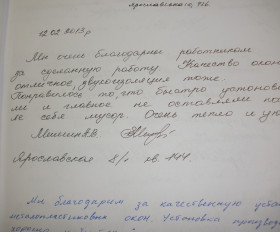 Ярославского, 92б
12.02.2013г
Мы очень благодарны работникам
за сделанную работу. Качество окон
отличное, звукоизоляция тоже.
Понравилось то, что быстро установи
ли и главное не оставляли пос
ле себя мусор. Очень тепло и ую
Ярославская 8/1 кв. 144.
Мы благодарим за качественную уста
металлопластиковых окон. Установка произвед